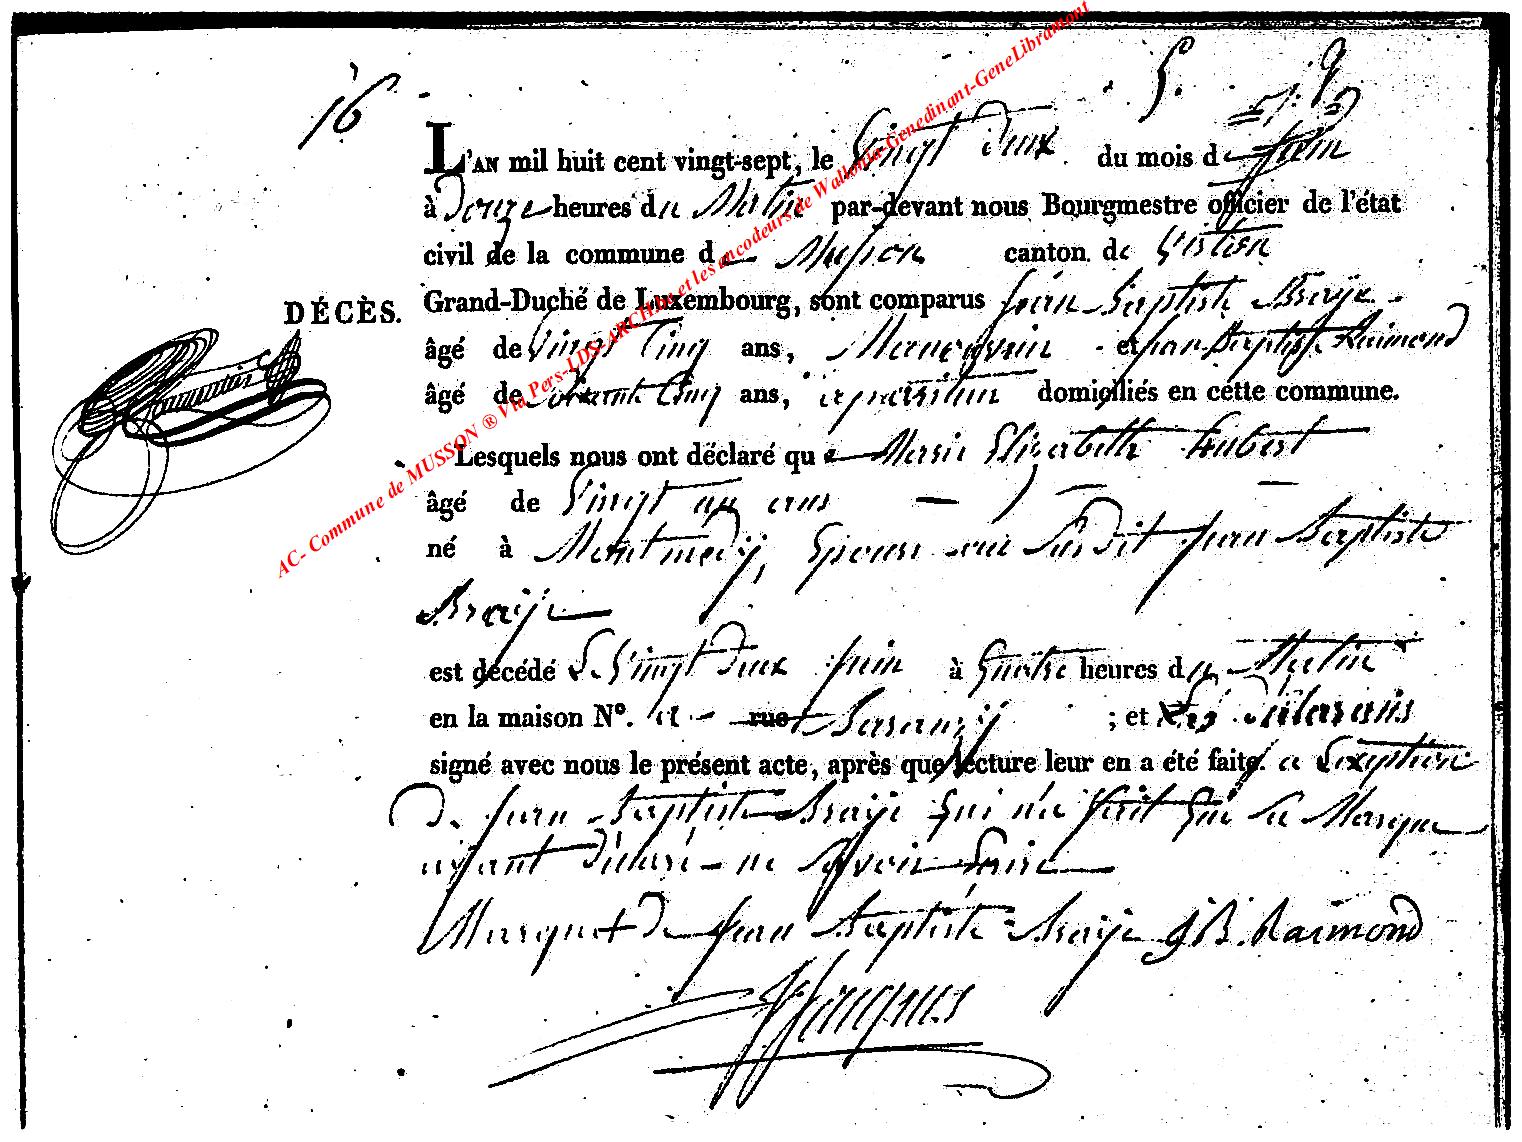 16
L'AN mil huit cent vingt-sept, le Vingt deux du mois de Juin
à Douze heures du Matin par-devant nous Bourgmestre officier de l'état
civil de la commune de Musson canton de Virton
DÉCÈS. Grand-Duché de Luxembourg, sont comparus Jean Baptiste Braÿe
âgé de Vingt Cinq ans, Manœuvrier et jean Baptiste Raimond
âgé de Soixante Cinq ans, domiciliés en cette commune.
Lesquels nous ont déclaré que Marie Elizabeth Hubert
âgé de Vingt un ans
né à Montmedÿ, Epouse au Susdit Jean Baptiste
Braÿe
est décédé Le Vingt deux Juin à Quatre heures du Matin
en la maison N°. a rue Baranzÿ ; et Les déclarans
signé avec nous le présent acte, après que lecture leur en a été faite. a L'exception
De Jean Baptiste Braÿe Qui n'a fait Que Sa Marque
aÿant Déclaré ne Savoir Faire
Marque + De Jean Baptiste Braÿe J B. Raimond
Jacques
AC- Commune de MUSSON ® Via Pers-LDS-ARCHBe et les encodeurs de Wallonia-Genedinant-GeneLibramont